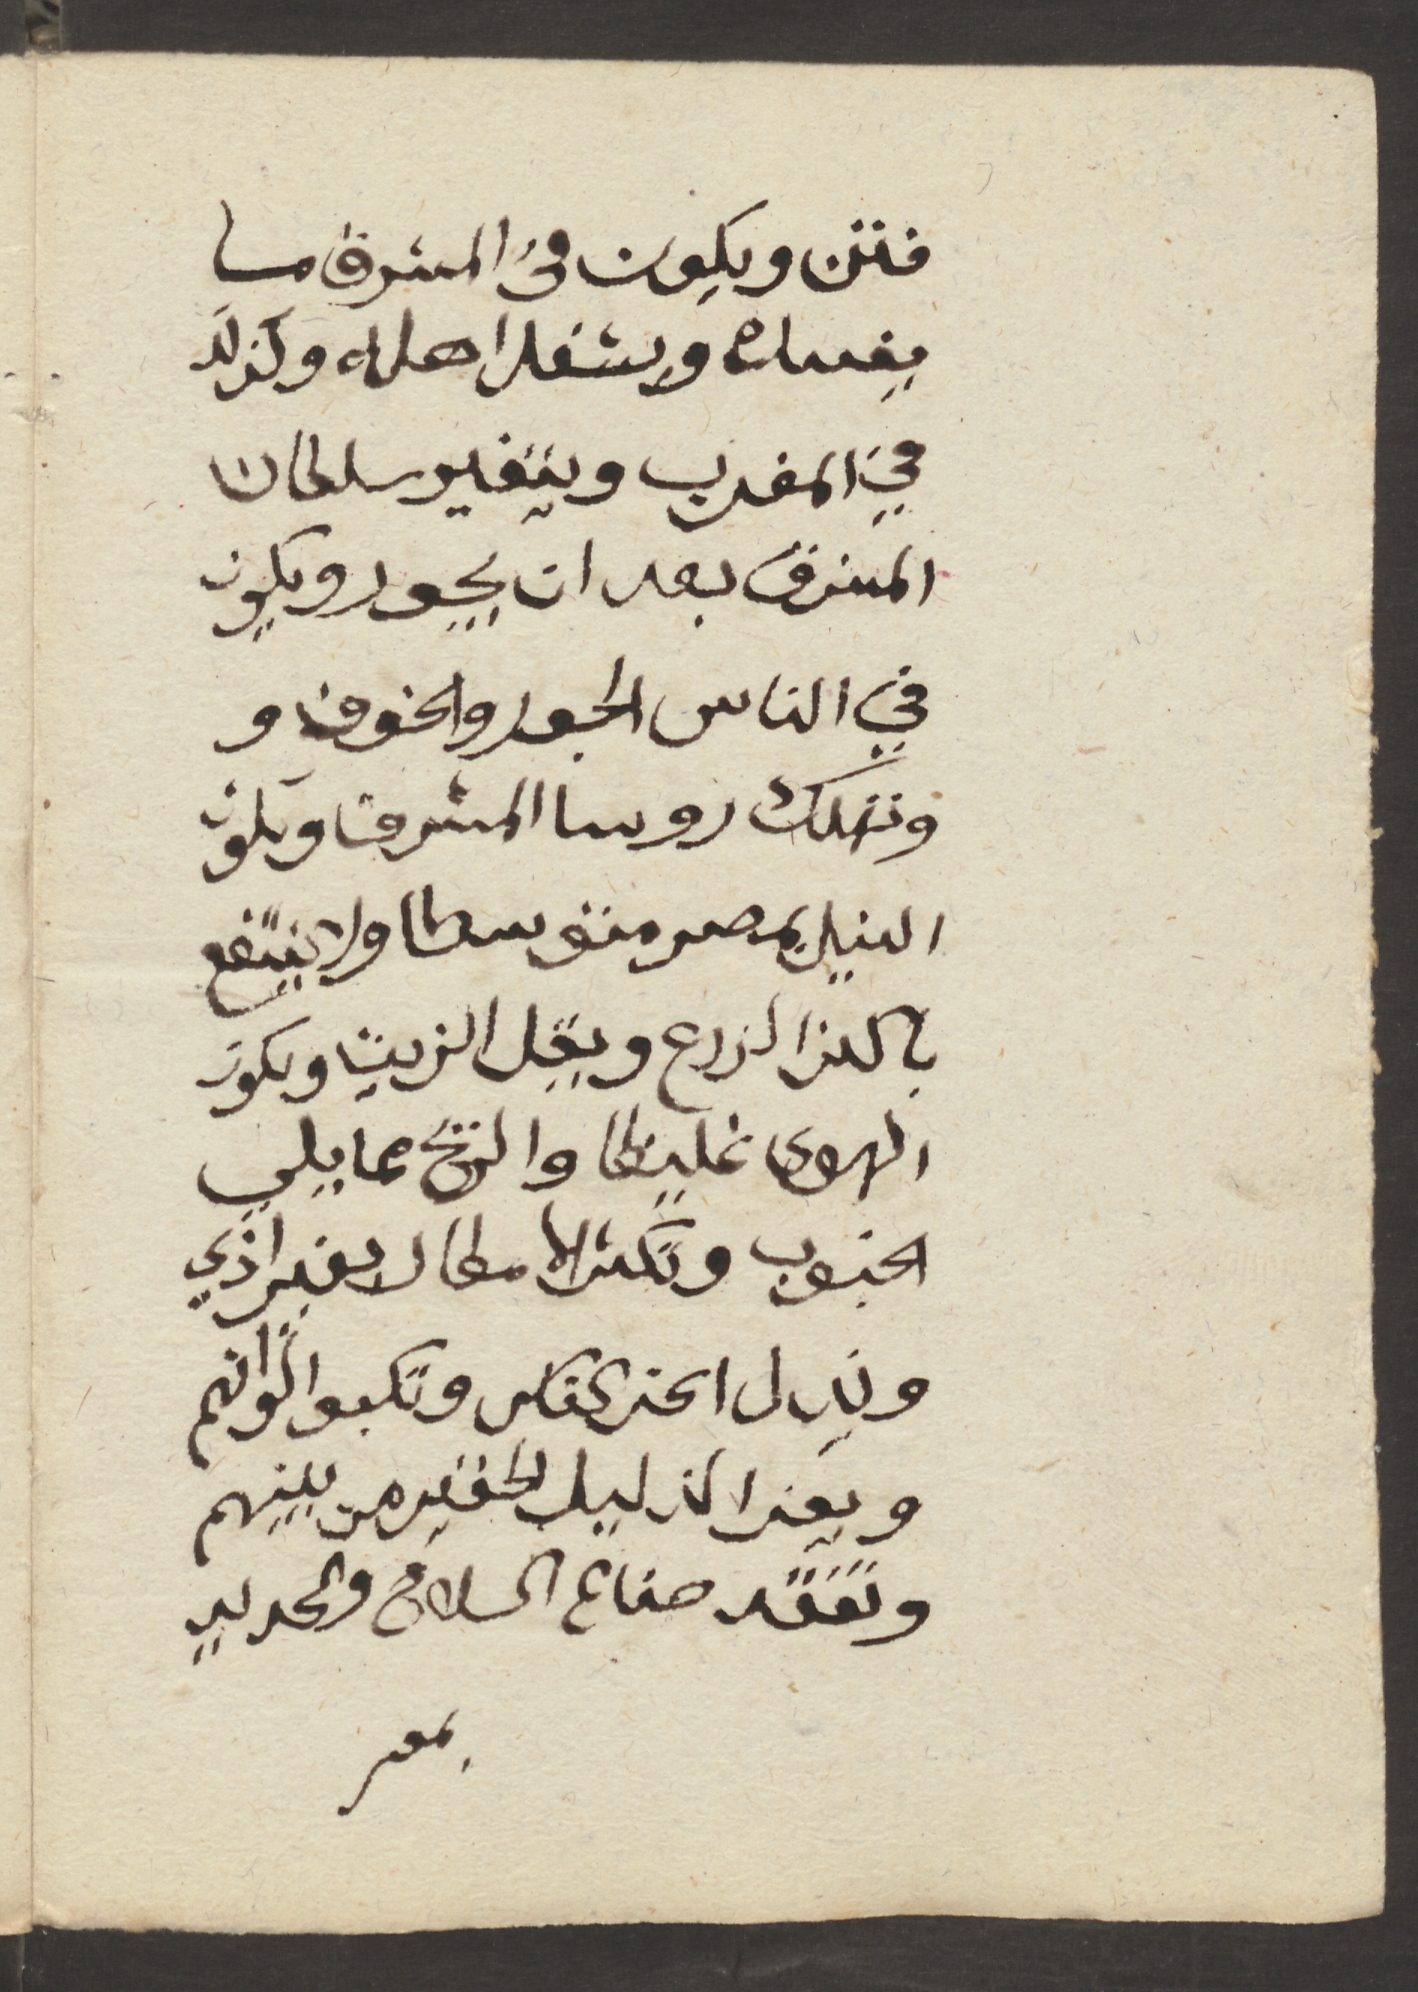 فتن ويكون في المشرق ما
يفساده ويشغل اهله وكذلك
في المغرب ويتغير سلطان
المشرق بعد ان يجور ويكون
في الناس الجور والخوف و
وتهلك روسا المشرق ويكون
النيل بمصر متوسطا ولا ينتفع
باكثر الزرع ويقل الزيت ويكون
الهوى غليظا والريح مما يلي
الجنوب وتكثر الامطار بغير اذي
ويذل اكثر الناس وتكبو الوانهم
ويعز الذليل الحقير من بينهم
وتفقد صناع السلاح والحديد
بمصر